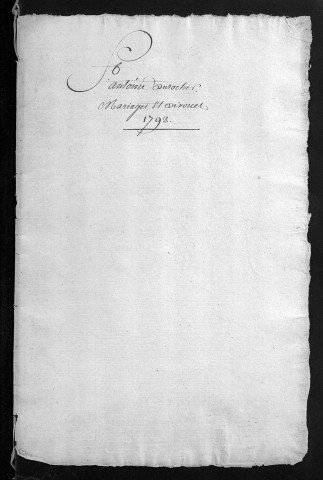 St
antoine durocher.
Mariages Et divorces.
1793.